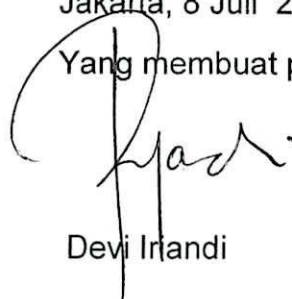 Jakarta, 8 Juli 2
Yang membuat p
Devi Irlandi